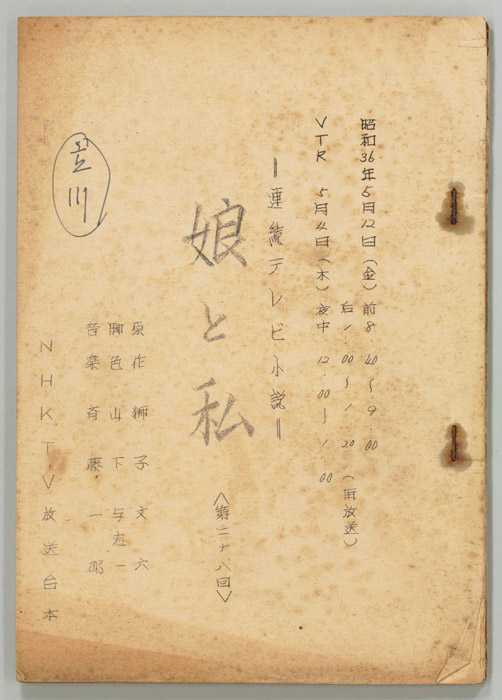 昭和36年5月12日(金)前8.40~9.00
后1.00~1.20(再放送)
VTR 5月4日(木)夜中12.00~1.00
―連続テレビ小説―
娘と私
<第二十八回>
原作 獅子文六
脚色 山下与志一
音楽 斉藤一郎
NHKTV放送台本